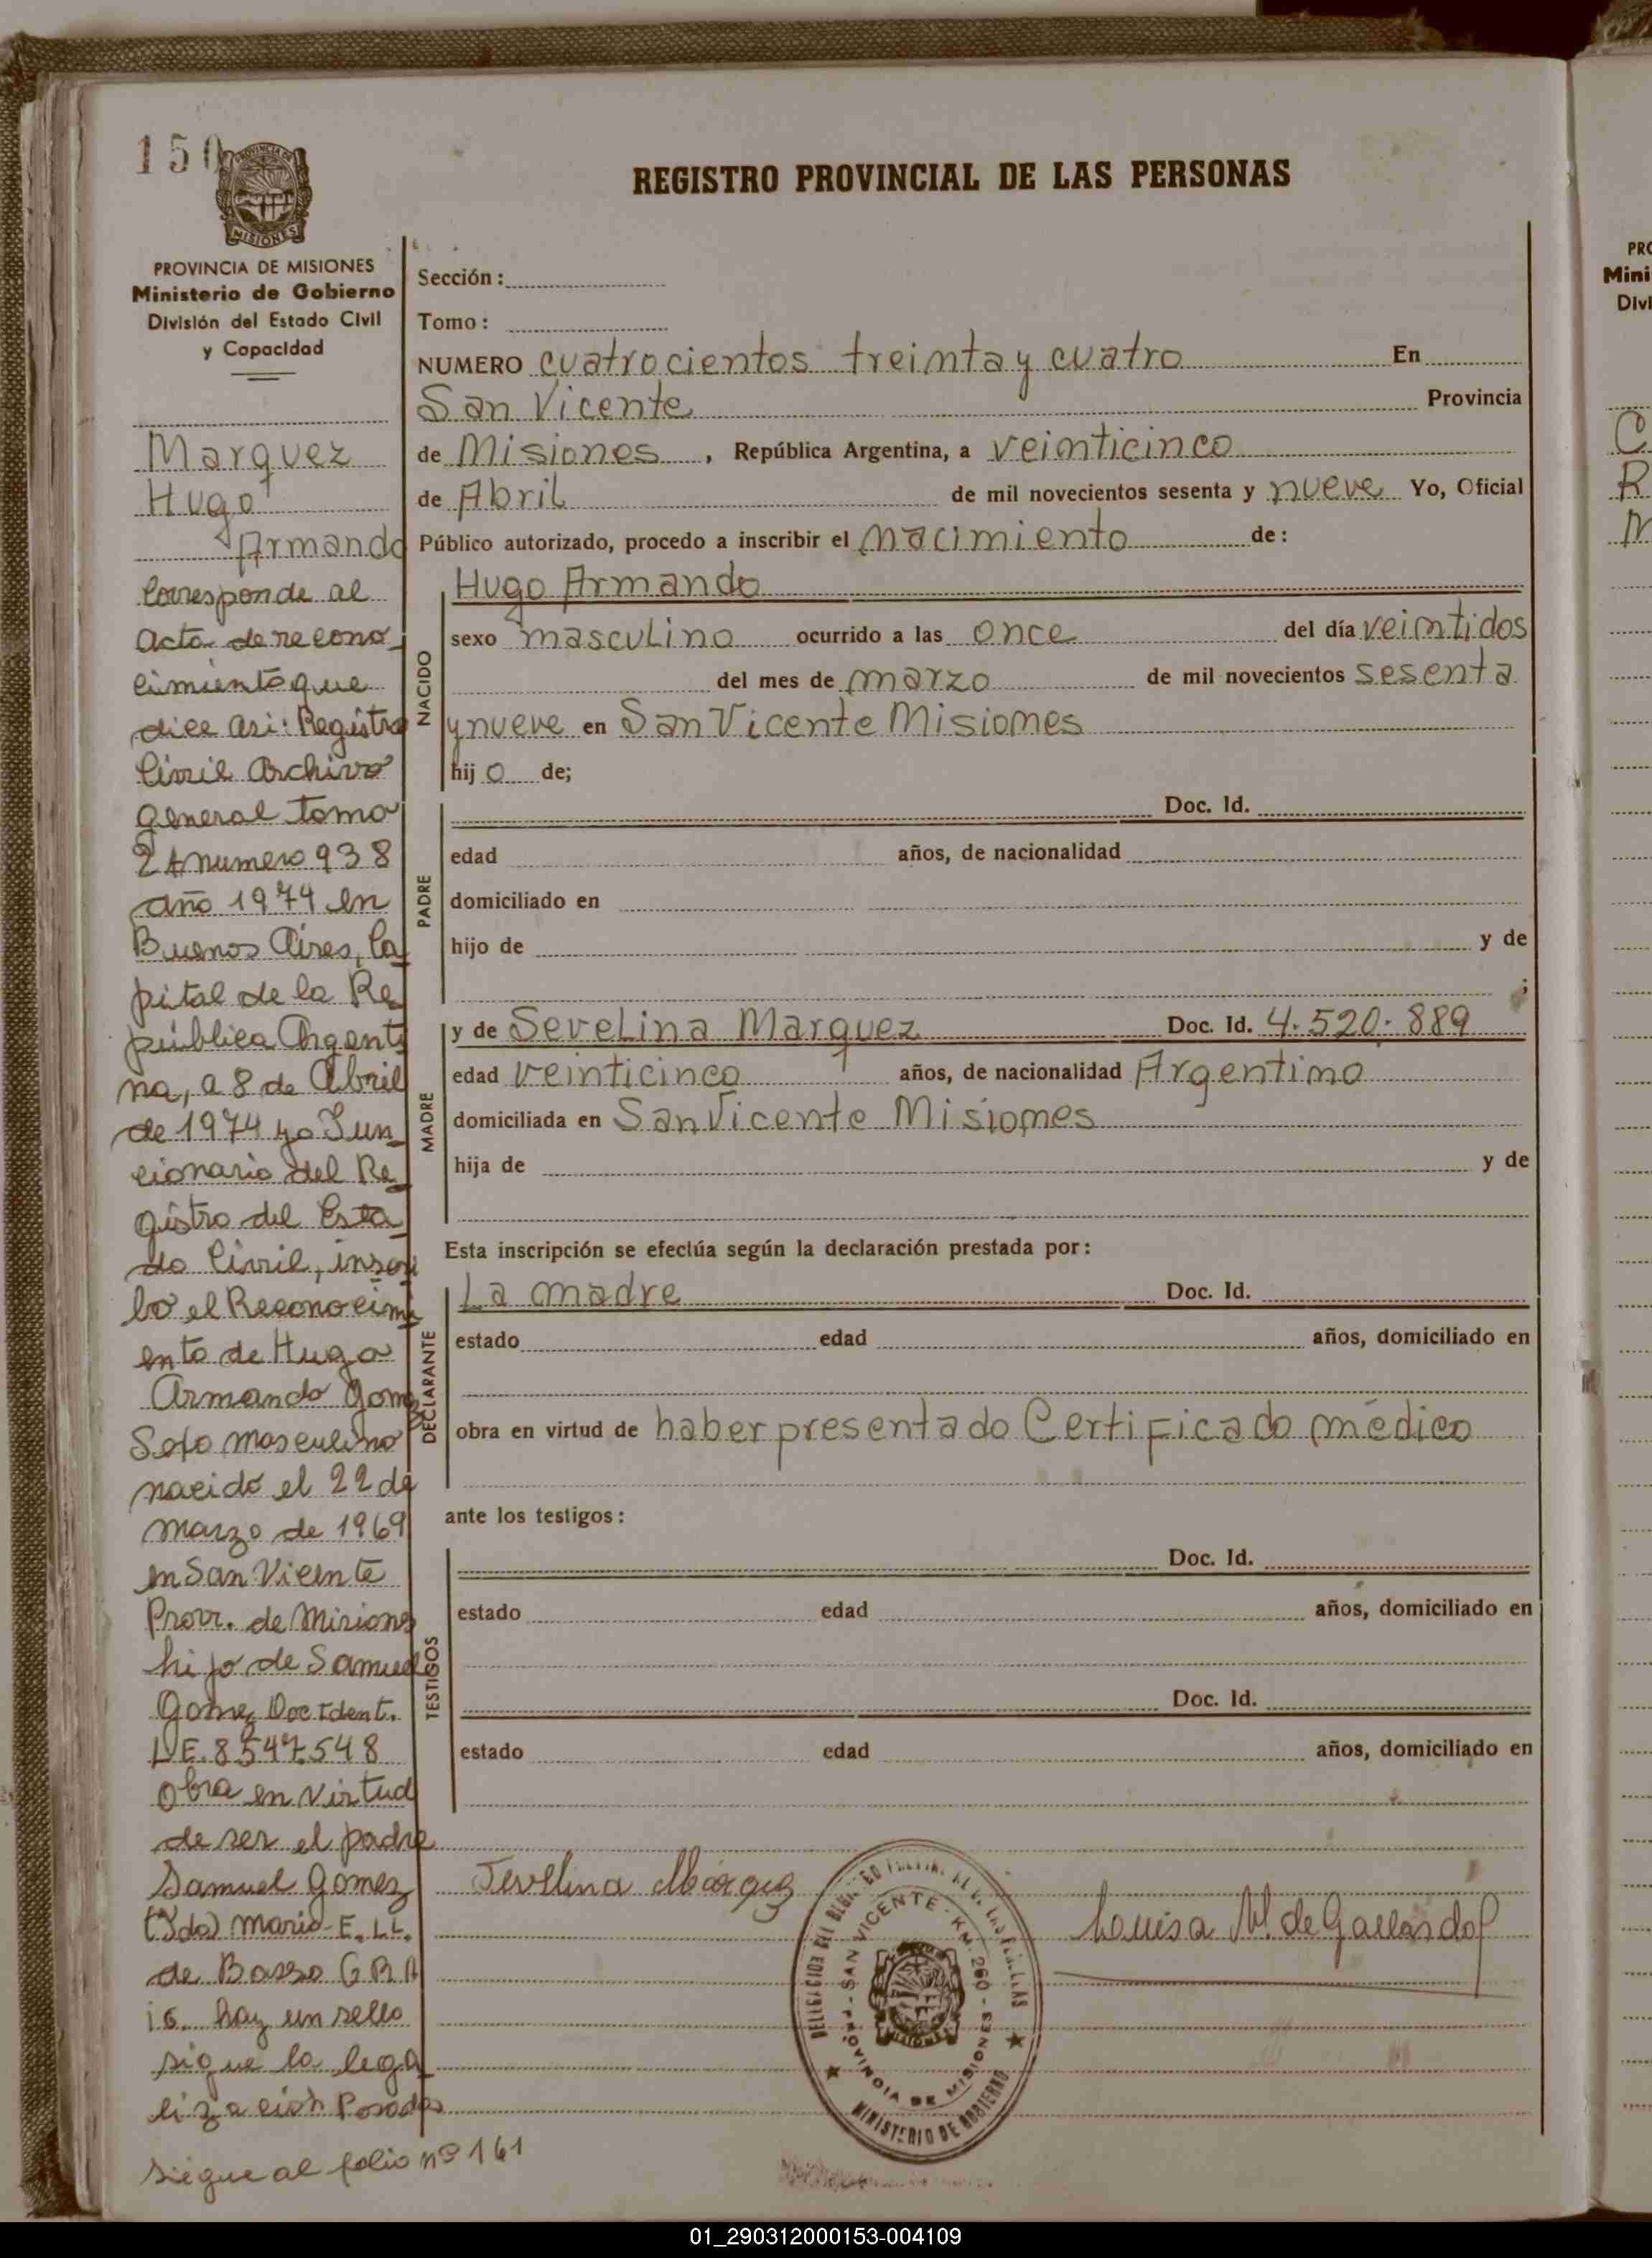 150
PROVINCIA DE
MISIONES
REGISTRO PROVINCIAL DE LAS PERSONAS
PROVINCIA DE MISIONES
Ministerio de Gobierno
División del Estado Civil
y Capacidad
Marquez
Hugo
Armando
Corresponde al
acta de recono
cimiento que
dice asi: Registro
Civil Archivo
general tomo
2A numero 938
año 1974 en
Buenos Aires, Ca
pital de la Re
pública Argenti
na, a 8 de Abril
de 1974 yo Fun
cionario del Re
gistro del Esta
do Civil, inscri
bo el Reconocimi
ento de Hugo
Armando Gomez
Sexo masculino
nacido el 22 de
marzo de 1969
en San Vicente
Prov. de Misiones
hijo de Samuel
Gomez Doc Ident.
L.E. 8547548
Obra en virtud
de ser el padre
Samuel Gomez
(Fdo) Mario E. LL.
de Basso
hay un sello
sigue la lega
lización Posadas
Sigue al folio nº 161
Sección:
Tomo:
NUMERO cuatrocientos treinta y cuatro En
San Vicente Provincia
de Misiones, República Argentina, a veinticinco
de Abril de mil novecientos sesenta y nueve Yo, Oficial
Público autorizado, procedo a inscribir el nacimiento de:
NACIDO
Hugo Armando
sexo masculino ocurrido a las once del día veintidos
del mes de marzo de mil novecientos sesenta
y nueve en San Vicente Misiones
hijo de;
PADRE
Doc. Id.
edad años, de nacionalidad
domiciliado en
hijo de y de
;
MADRE
y de Sevelina Marquez Doc. Id. 4.520.889
edad veinticinco años, de nacionalidad Argentino
domiciliada en San Vicente Misiones
hija de y de
Esta inscripción se efectúa según la declaración prestada por:
DECLARANTE
La madre Doc. Id.
estado edad años, domiciliado en
obra en virtud de haber presentado Certificado médico
ante los testigos:
TESTIGOS
Doc. Id.
estado edad años, domiciliado en
Doc. Id.
estado edad años, domiciliado en
Sevelina Marquez
Louisa M. de Gallardo
SAN VICENTE - KM. 260 - PROVINCIA DE MISIONES
MINISTERIO DE GOBIERNO
MISIONES
PRO
Mini
Divi
C
R
01_290312000153-004109